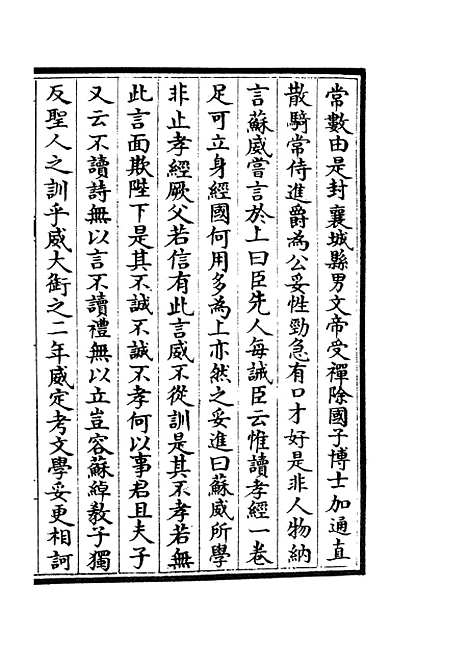 常數由是封襄城縣男文帝受禪除國子博士加通直
散騎常侍進爵為公妥性勁急有口才好是非人物納
言蘇威嘗言於上曰臣先人每誡臣云惟讀孝經一卷
足可立身經國何用多為上亦然之妥進曰蘇威所學
非止孝經厥父若信有此言威不從訓是其不孝若無
此言面欺陛下是其不誠不誠不孝何以事君且夫子
又云不讀詩無以言不讀禮無以立豈容蘇綽教子獨
反聖人之訓乎威大銜之二年威定考文學妥更相訶